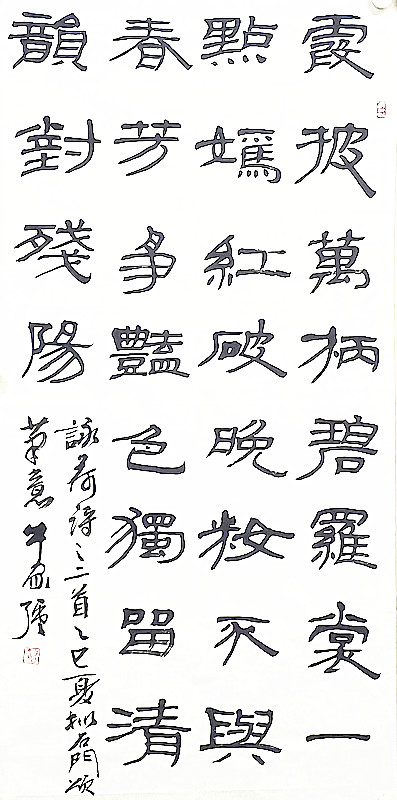 霞披萬柄碧羅裳一
點嫣紅破晚妝不與
春芳爭豔色獨留清
韻對殘陽
詠荷詩之二首之乙夏擬石門頌
筆意